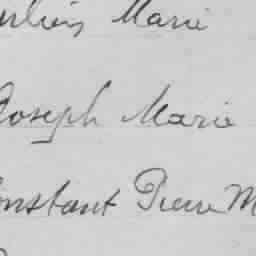 Marie
Joseph Marie
Constant Pierre M